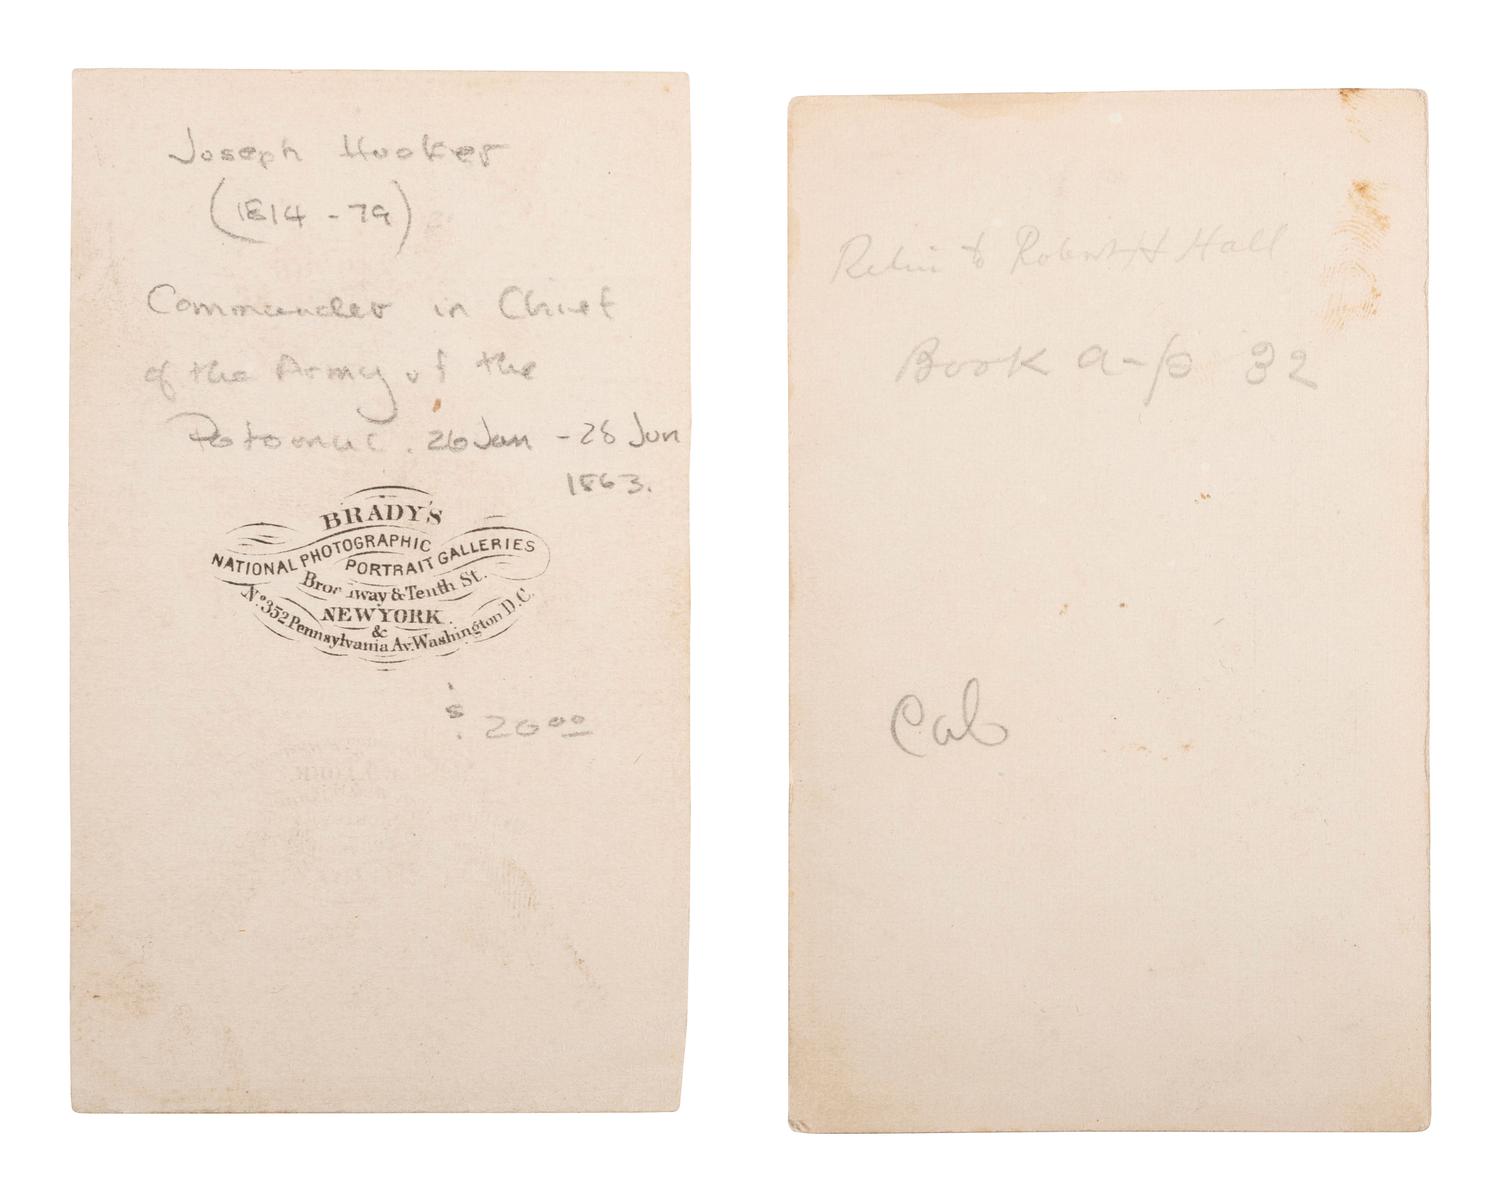 Joseph Hooker
(1814 - 79)
Commander in Chief
of the Army of the
Potomac. 26 Jan - 28 Jun
1863.
BRADY'S
NATIONAL PHOTOGRAPHIC
PORTRAIT GALLERIES
Broadway & Tenth St.
NEW YORK
&
No. 352 Pennsylvania Av. Washington D.C.
$ 20 00
to Robert H Hall
Book a-p 32
Cab